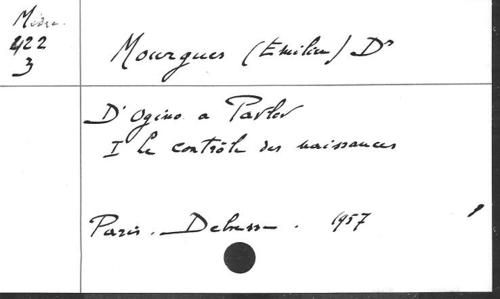 Méde.
422
3
Mourgues (Emilien) Dr
D'Ogino a Pavlov
I Le contrôle des naissances
Paris. Debresse. 1957